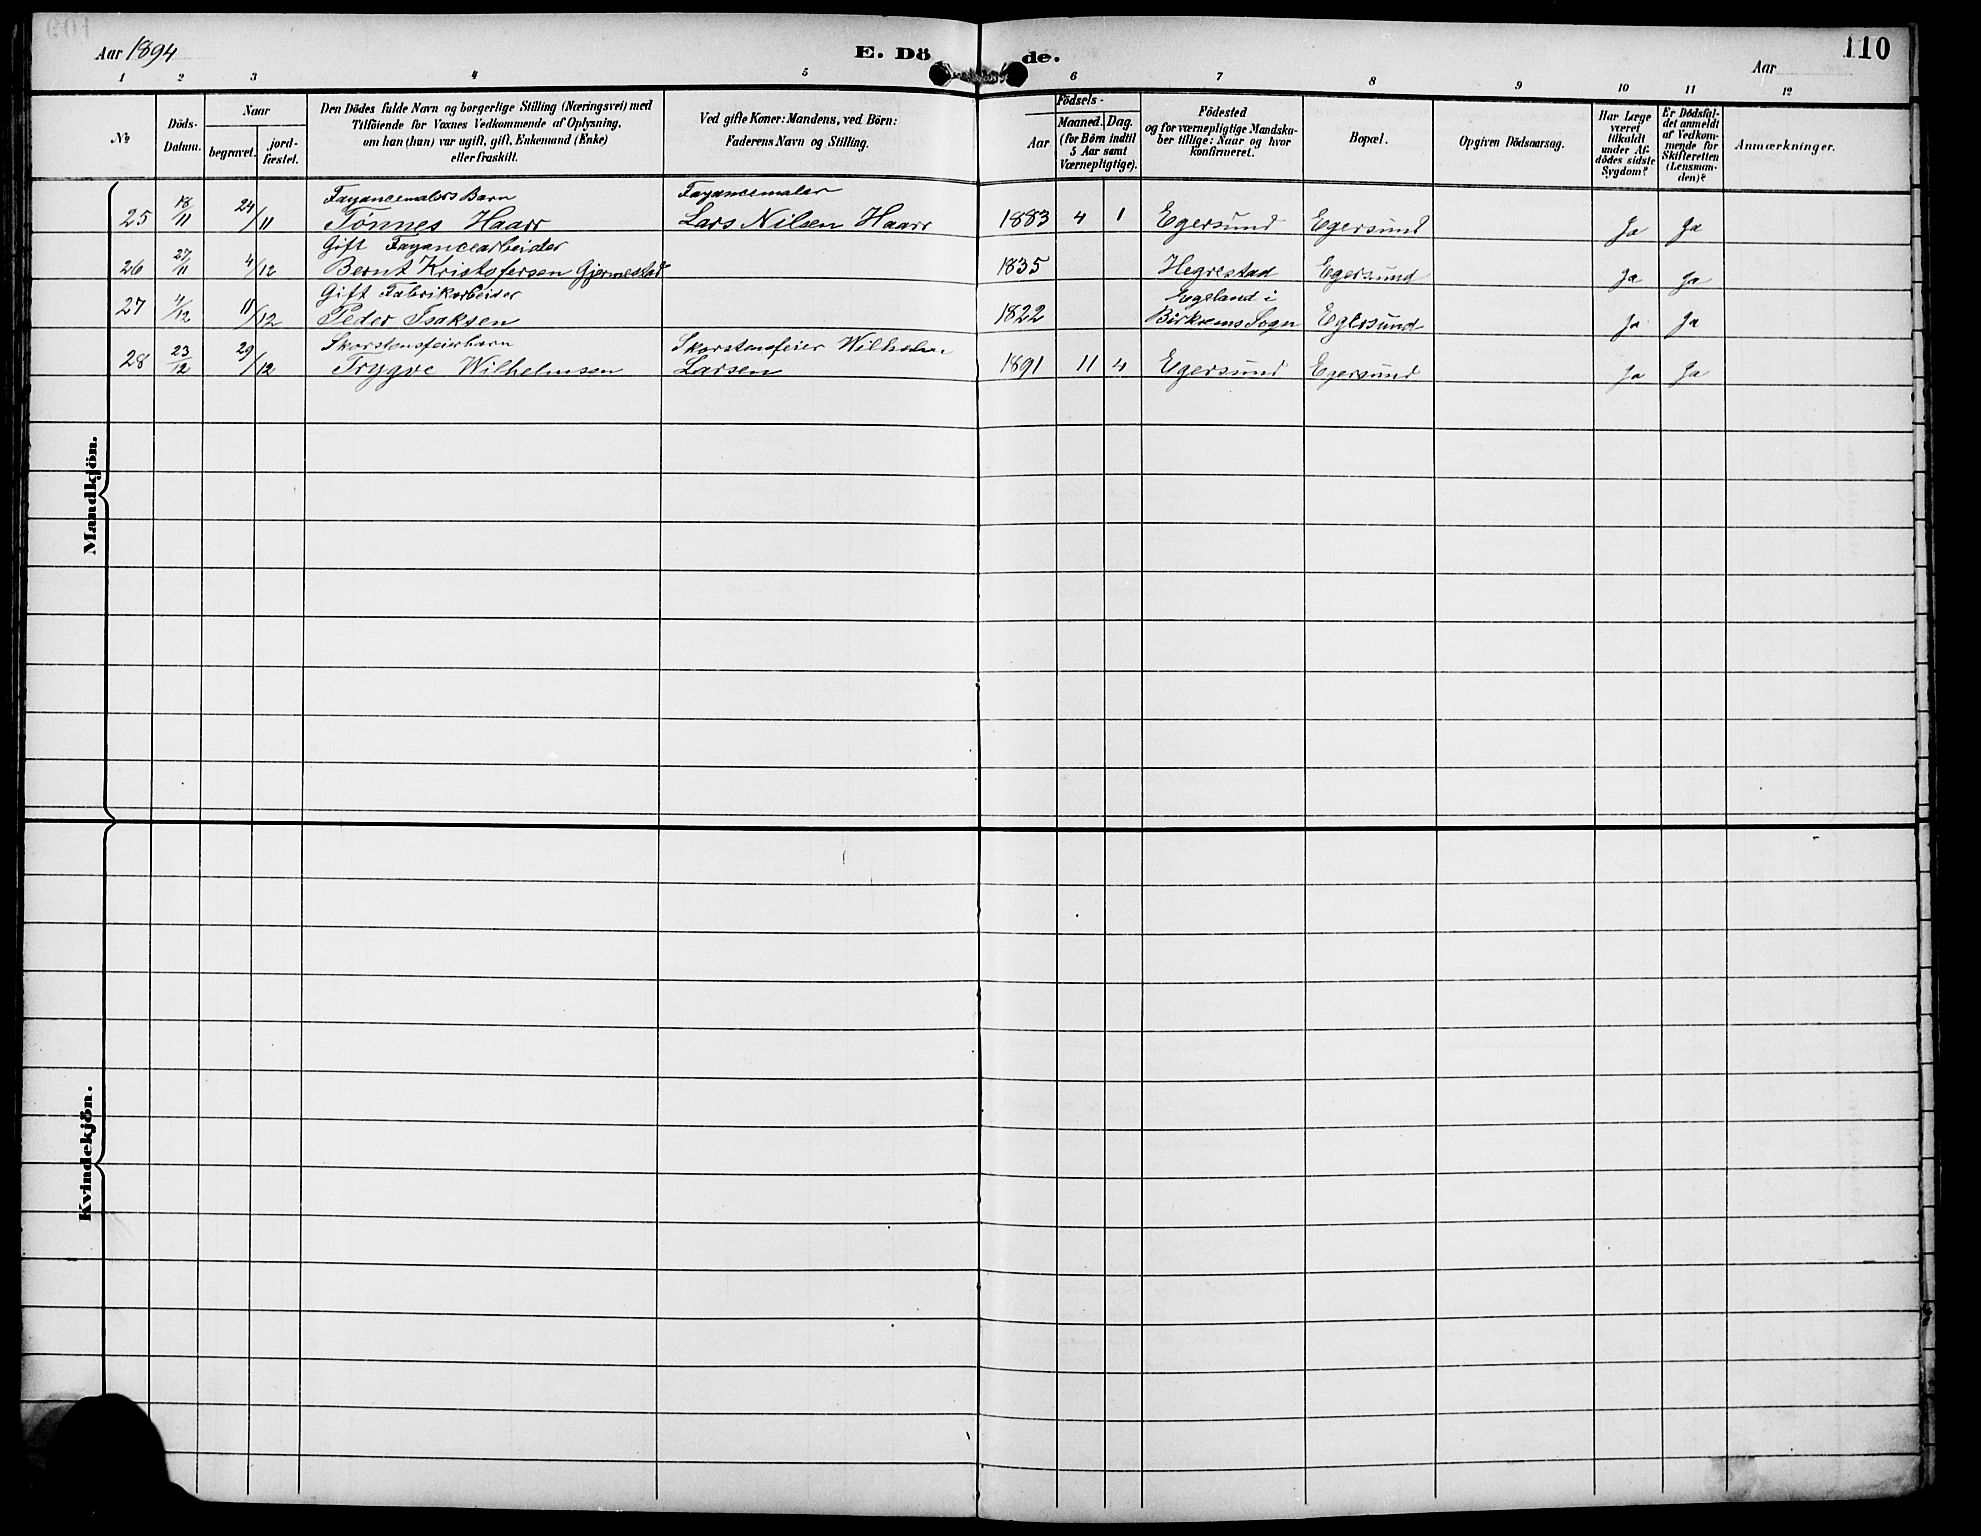 Aar 1894
E. Dö de.
Aar
110
1 2 3 4 5 6 7 8 9 10 11 12
No
Döds-
Datum.
Naar
begravet.
jord-
fæstet.
Den Dödes fulde Navn og borgerlige Stilling (Næringsvei) med
Tilföiende for Voxnes Vedkommende af Oplysning,
om han (hun) var ugift, gift, Enkemand (Enke)
eller fraskilt.
Ved gifte Koner: Mandens, ved Börn:
Faderens Navn og Stilling.
Födsels-
Aar
Maaned.
Dag.
(for Börn indtil
5 Aar samt
Værnepligtige).
Födested
og for værnepligtige Mandska-
ber tillige: Naar og hvor
konfirmeret.
Bopæl.
Opgiven Dödsaarsag.
Har Læge
været
tilkaldt
under Af-
dödes sidste
Sygdom?
Er Dödsfal-
det anmeldt
af Vedkom-
mende for
Skifteretten
(Lensman-
den)?
Anmærkninger.
Mandkjön.
Fayancemalers Barn Fayancemaler
25 18/11 24/11 Tønnes Haarr Lars Nilsen Haarr 1883 4 1 Egersund Egersund Ja Ja
Gift Fayancearbeider
26 27/11 4/12 Bernt Kristofersen Gjermestad 1835 Hegrestad Egersund Ja Ja
Gift Fabrikarbeider Egeland i
27 4/12 11/12 Peder Isaksen 1822 Birkrems Sogn Egersund Ja Ja
Skorstensfeierbarn Skorstensfeier Wilhelm
28 23/12 29/12 Trygve Wilhelmsen Larsen 1891 11 4 Egersund Egersund Ja Ja
Kvindekjön.